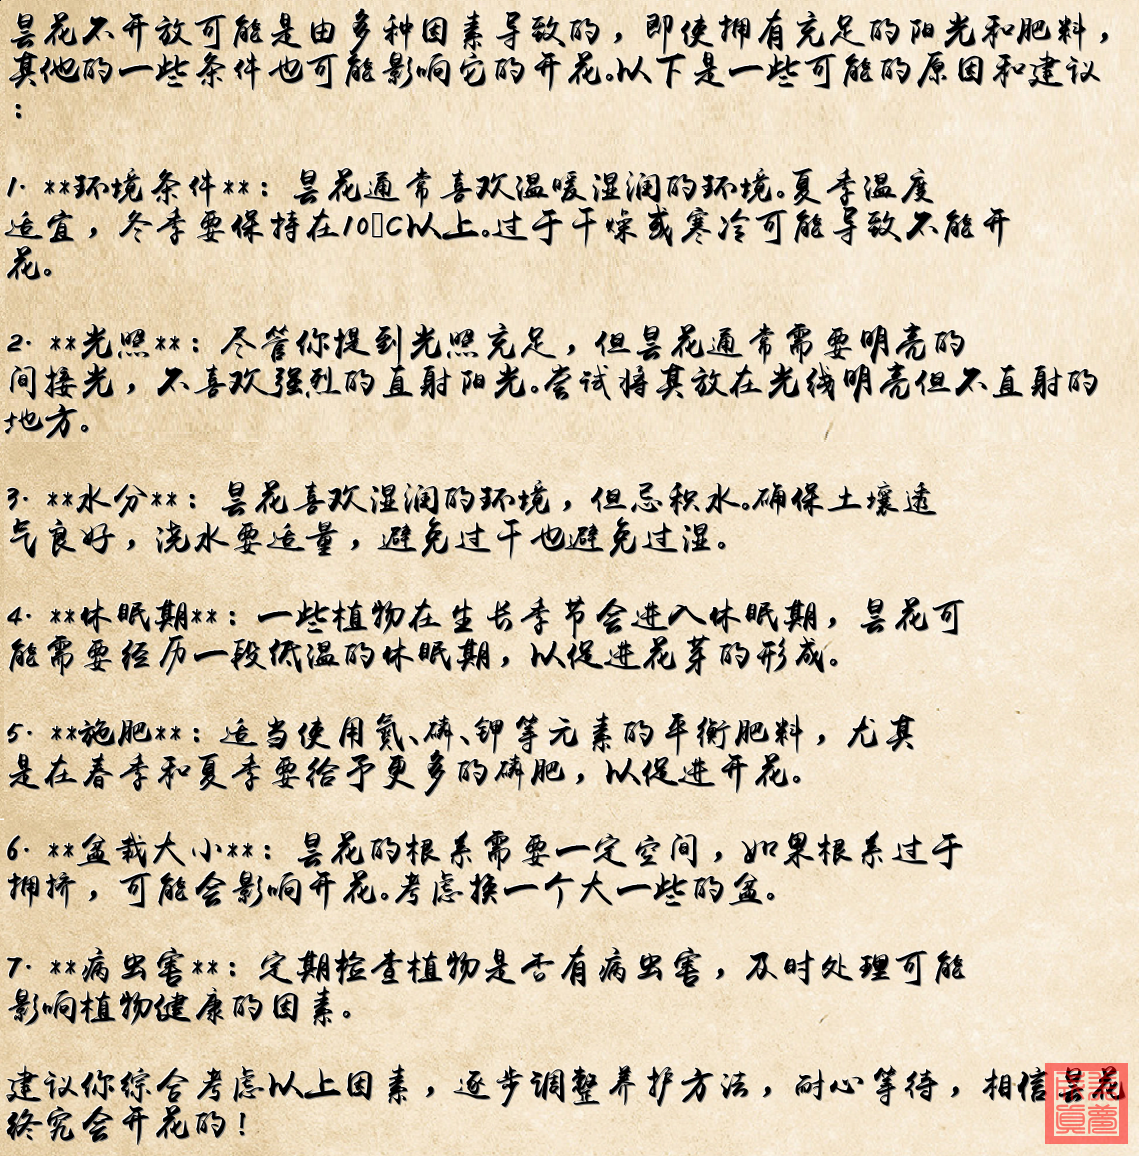 昙花不开放可能是由多种因素导致的，即使拥有充足的阳光和肥料，
其他的一些条件也可能影响它的开花。以下是一些可能的原因和建议
：
1. **环境条件**：昙花通常喜欢温暖湿润的环境。夏季温度
适宜，冬季要保持在10▯C以上。过于干燥或寒冷可能导致不能开
花。
2. **光照**：尽管你提到光照充足，但昙花通常需要明亮的
间接光，不喜欢强烈的直射阳光。尝试将其放在光线明亮但不直射的
地方。
3. **水分**：昙花喜欢湿润的环境，但忌积水。确保土壤透
气良好，浇水要适量，避免过干也避免过湿。
4. **休眠期**：一些植物在生长季节会进入休眠期，昙花可
能需要经历一段低温的休眠期，以促进花芽的形成。
5. **施肥**：适当使用氮、磷、钾等元素的平衡肥料，尤其
是在春季和夏季要给予更多的磷肥，以促进开花。
6. **盆栽大小**：昙花的根系需要一定空间，如果根系过于
拥挤，可能会影响开花。考虑换一个大一些的盆。
7. **病虫害**：定期检查植物是否有病虫害，及时处理可能
影响植物健康的因素。
建议你综合考虑以上因素，逐步调整养护方法，耐心等待，相信昙花
终究会开花的！